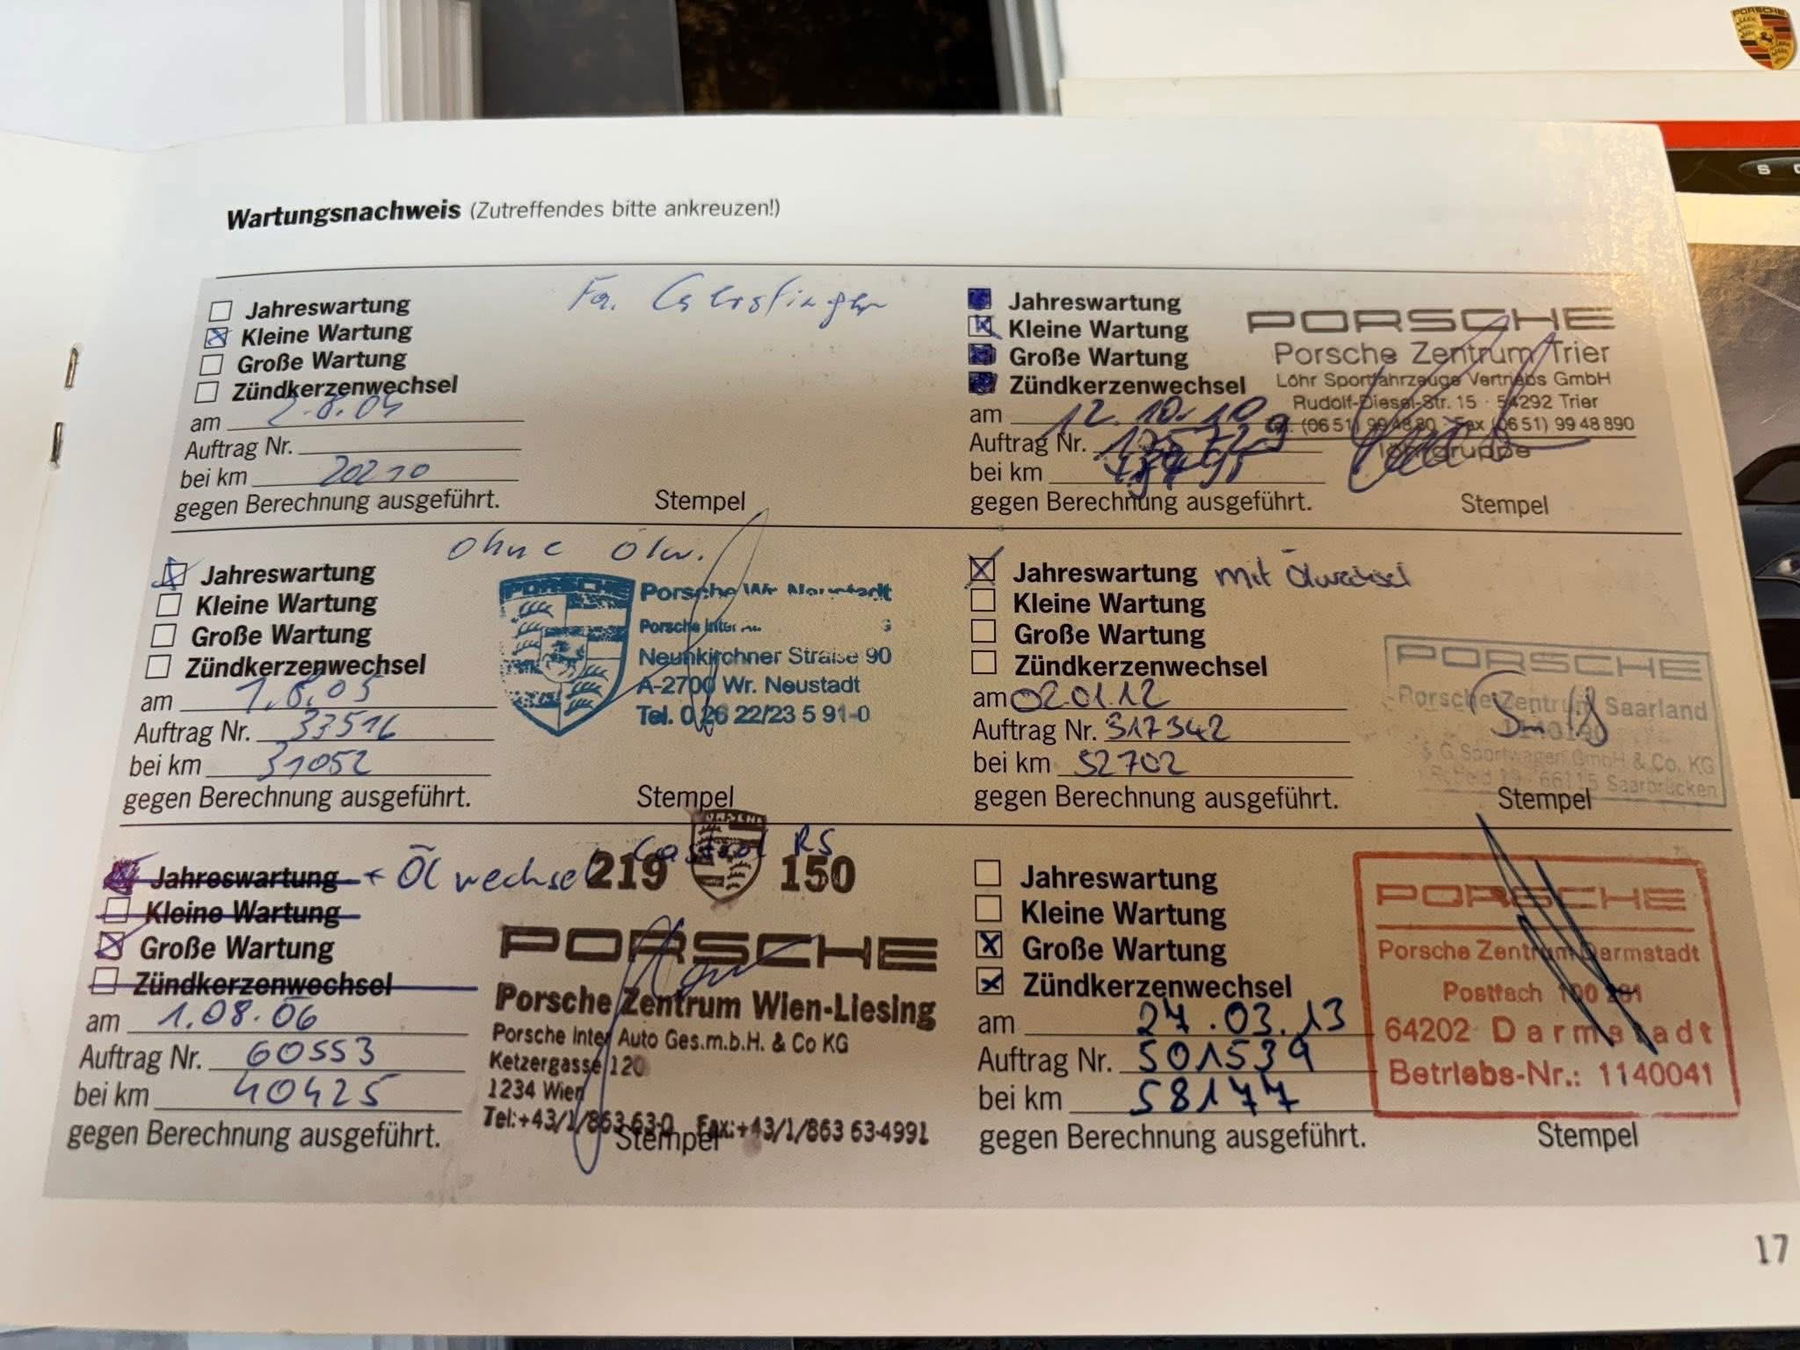 Wartungsnachweis (Zutreffendes bitte ankreuzen!)
Fa.
Jahreswartung
Kleine Wartung
Große Wartung
Zündkerzenwechsel
am 2.8.04
Auftrag Nr.
bei km 20210
gegen Berechnung ausgeführt.
Stempel
ohne Ölw.
Jahreswartung
Kleine Wartung
Große Wartung
Zündkerzenwechsel
am 1.8.05
Auftrag Nr. 33516
bei km 31052
gegen Berechnung ausgeführt.
PORSCHE
Porsche Wr. Neustadt
Porsche Inter
Neunkirchner Straße 90
A-2700 Wr. Neustadt
Tel. 0 26 22/23 5 91-0
Stempel
Jahreswartung + Ölwechsel Castrol RS
Kleine Wartung
Große Wartung
Zündkerzenwechsel
am 1.08.06
Auftrag Nr. 60553
bei km 40425
gegen Berechnung ausgeführt.
219 150
PORSCHE
Porsche Zentrum Wien-Liesing
Porsche Inter Auto Ges.m.b.H. & Co KG
Ketzergasse 120
1234 Wien
Tel:+43/1/863 63-0 Fax:+43/1/863 63-4991
Stempel
Jahreswartung
Kleine Wartung
Große Wartung
Zündkerzenwechsel
am 12.10.10
Auftrag Nr.
bei km
gegen Berechnung ausgeführt.
PORSCHE
Porsche Zentrum Trier
Löhr Sportfahrzeuge Vertriebs GmbH
Rudolf-Diesel-Str. 15 · 54292 Trier
(06 51) 99 48 80 · Fax (06 51) 99 48 890
löhrgruppe
Stempel
Jahreswartung mit Ölwechsel
Kleine Wartung
Große Wartung
Zündkerzenwechsel
am 02.01.12
Auftrag Nr. 317342
bei km 52702
gegen Berechnung ausgeführt.
PORSCHE
Porsche Zentrum Saarland
S G Sportwagen GmbH & Co. KG
66115 Saarbrücken
Stempel
Jahreswartung
Kleine Wartung
Große Wartung
Zündkerzenwechsel
am 27.03.13
Auftrag Nr. 501539
bei km 58177
gegen Berechnung ausgeführt.
PORSCHE
Porsche Zentrum Darmstadt
Postfach 100
64202 Darmstadt
Betriebs-Nr.: 1140041
Stempel
17
PORSCHE